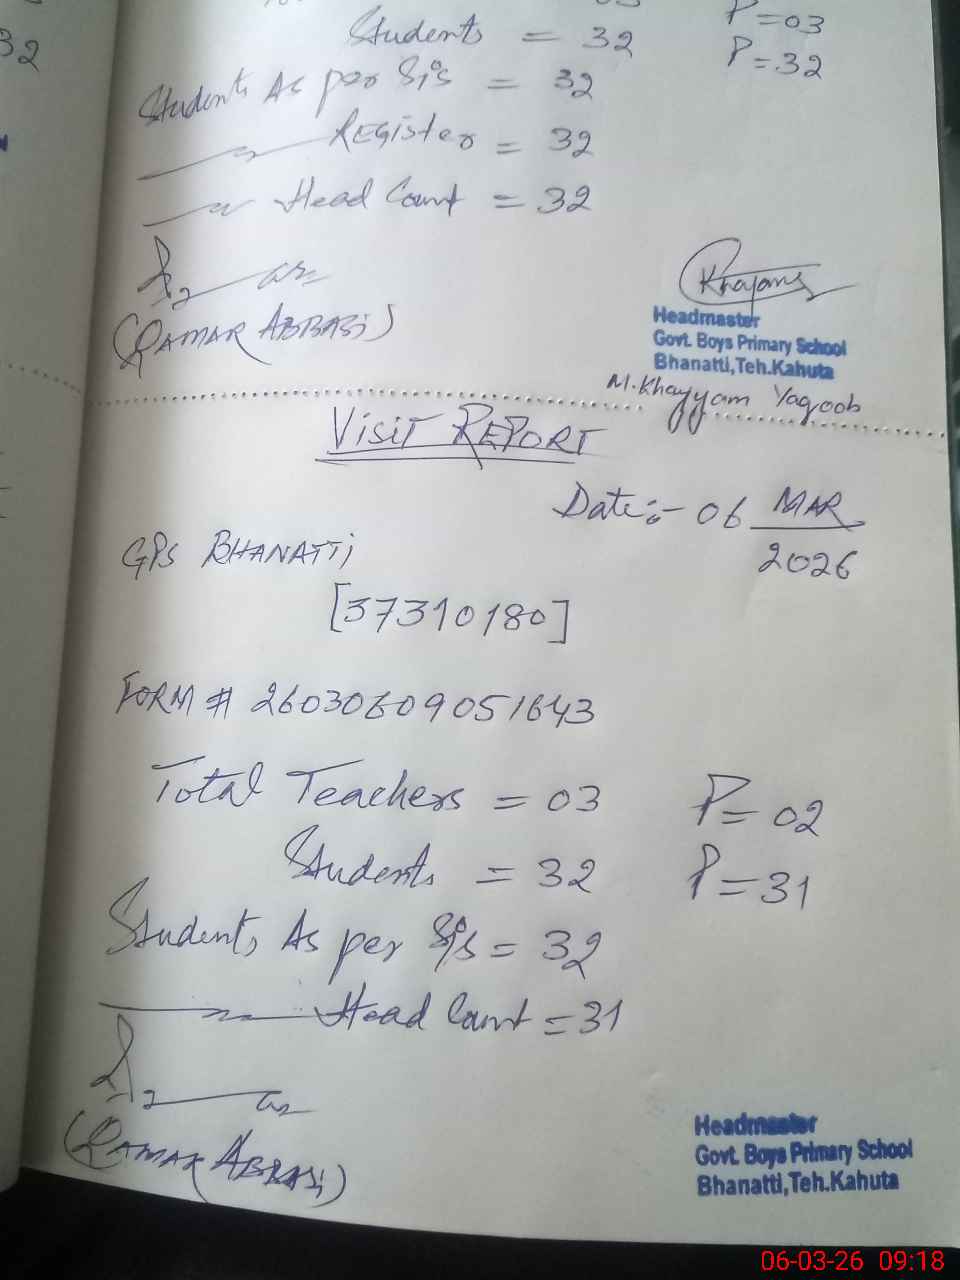 32
Students = 32 P=03
P=32
Students As per Sis = 32
Register = 32
Head Count = 32
(Qamar Abbasi)
Khayam
Headmaster
Govt. Boys Primary School
Bhanatti, Teh. Kahuta
M. Khayyam Yaqoob
VISIT REPORT
Date:- 06 MAR
2026
GPS BHANATTi
[37310180]
FORM # 26030609051643
Total Teachers = 03 P=02
Students = 32 P=31
Students As per Sis = 32
Head Count = 31
(Qamar Abbasi)
Headmaster
Govt. Boys Primary School
Bhanatti, Teh. Kahuta
06-03-26 09:18